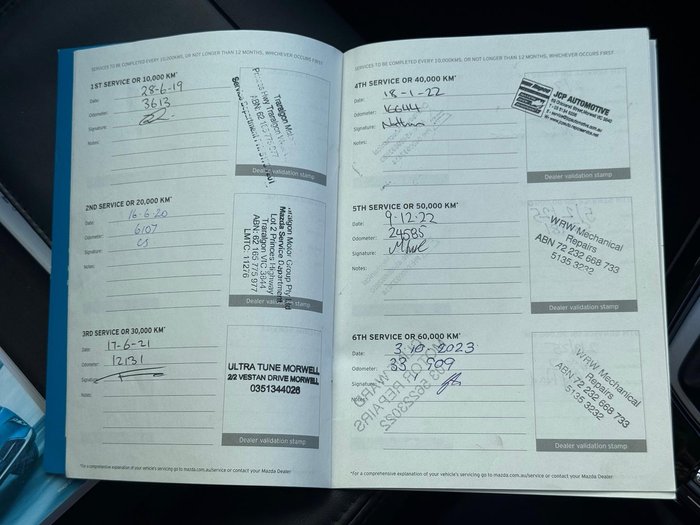 SERVICES TO BE COMPLETED EVERY 10,000KMS, OR NOT LONGER THAN 12 MONTHS, WHICHEVER OCCURS FIRST
1ST SERVICE OR 10,000 KM*
Date: 28-6-19
Odometer: 3613
Signature:
Notes:
Traralgon
ABN: 62 165 775 977
Dealer validation stamp
2ND SERVICE OR 20,000 KM*
Date: 16-6-20
Odometer: 6107
Signature: CS
Notes:
Traralgon Motor Group Pty
Mazda Service Department
Lot 2 Princes Highway
Traralgon VIC 3844
ABN: 62 165 775 977
LMTC: 11276
Dealer validation stamp
3RD SERVICE OR 30,000 KM*
Date: 17-6-21
Odometer: 12131
Signature:
Notes:
ULTRA TUNE MORWELL
2/2 VESTAN DRIVE MORWELL
0351344026
Dealer validation stamp
*For a comprehensive explanation of your vehicle's servicing go to mazda.com.au/service or contact your Mazda Dealer
SERVICES TO BE COMPLETED EVERY 10,000KMS, OR NOT LONGER THAN 12 MONTHS, WHICHEVER OCCURS FIRST
4TH SERVICE OR 40,000 KM*
Date: 18-1-22
Odometer: 16644
Signature:
Notes:
JCP AUTOMOTIVE
Dealer validation stamp
5TH SERVICE OR 50,000 KM*
Date: 9.12.22
Odometer: 24585
Signature:
Notes:
WRW Mechanical
Repairs
ABN 72 232 668 733
5135 3232
Dealer validation stamp
6TH SERVICE OR 60,000 KM*
Date: 3-10-2023
Odometer: 33 909
Signature:
Notes:
WRW Mechanical
Repairs
ABN 72 232 668 733
5135 3232
Dealer validation stamp
*For a comprehensive explanation of your vehicle's servicing go to mazda.com.au/service or contact your Mazda Dealer